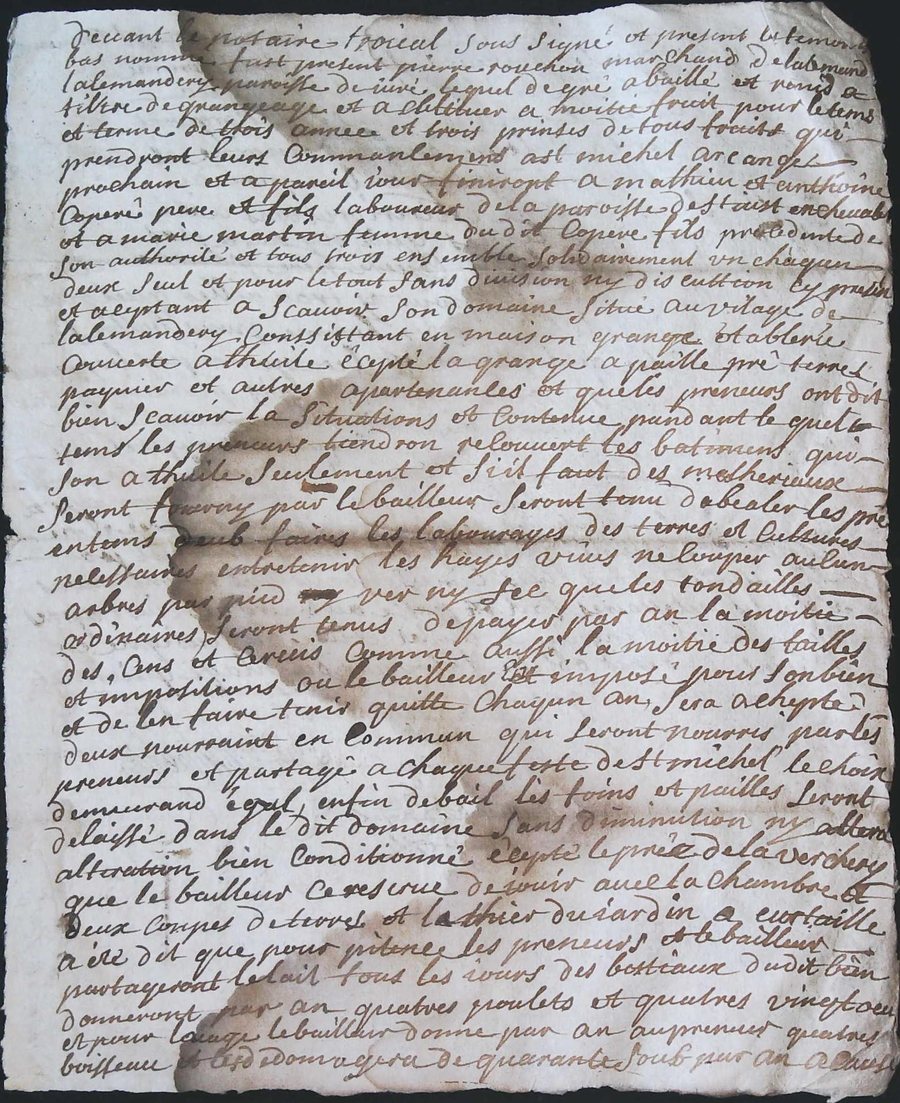 devant le notaire roieal sous signé et present les temoins
bas nommé fust present pierre rouchon marchand de
lalemandery paroisse de iuré lequel de gré a baillé et remis a
tiltre de grangeage et a moitié fruit pour le tems
et terme de trois annee et trois prinses de tous fruits qui
prendront leurs Commanlement a st michel arcange
prochain et a pareil iour finiront a mathieu et anthoine
Coperé pere et fils laboureur de la paroisse de st iust en chevalet
et a marie martin femme du dit Coperé fils procedente de
son authorité et tous trois ensemble solidairement un chaqun
deux seul et pour le tout sans division ny discution cy presen
et aceptant a scavoir son domaine situé au vilage de
lalemandery Conssistant en maison grange etablerie
Couverte a thuile écepté la grange a paille pré terres
paquier et autres apartenanles et queles preneurs ont dit
bien scavoir la situations et Contenue pandant le quel
tems les preneurs tiendron relouvert les batimens qui
son a thuile seulement et s'il faut des matheriaux
seront fourny par le bailleur seront tenu dabealer les pré
en tems deub faires les labourages des terres et Cultures
nelessaires entretenir les hayes vives ne louper aulun
arbres par pied ver ny sec que les tondailles
ordinaires seront tenus de payer par an la moitié
des Cens et Comme aussi la moitié des tailles
et impositions ou le bailleur est imposé pour son bien
et de len faire tenir quitte Chaqun an, sera achepté
deux nourraint en Commun qui seront nourris par les
preneurs et partagé a chaque feste de st michel le choix
demeurand égal, enfin de bail les foins et pailles seront
delaissé dans le dit domaine sans diminution ny
altération bien Conditionné écepté le pré de la verchery
que le bailleur ce reserve de iouir avec la chambre et
deux Coupes de terre et le thier du iardin a eurtaille
a été dit que pour pitence les preneurs et le bailleur
partageront le lait tous les iours des bestiaux du dit bien
donneront par an quatres poulets et quatres vingt
et pour le bailleur donne par an au preneur quatres
boisseau et dedomagera de quarante soub par an a cause